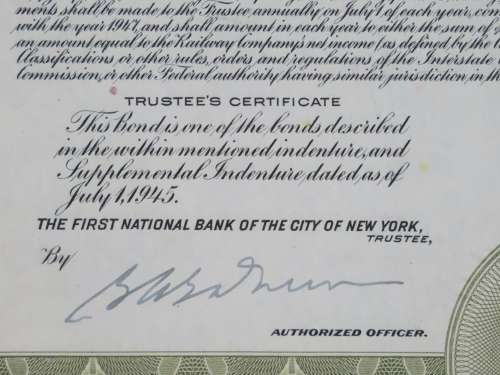 ments shall be made to the Trustee annually on July 1 of each year, com
with the year 1947, and shall amount in each year to either the sum of
an amount equal to the Railway Company's net income (as defined by the
Classifications or other rules, orders and regulations of the Interstate
Commission, or other Federal authority having similar jurisdiction in the
TRUSTEE'S CERTIFICATE
This Bond is one of the bonds, described
in the within mentioned indenture, and
Supplemental Indenture dated as of
July 1, 1945.
THE FIRST NATIONAL BANK OF THE CITY OF NEW YORK,
TRUSTEE,
By
AUTHORIZED OFFICER.